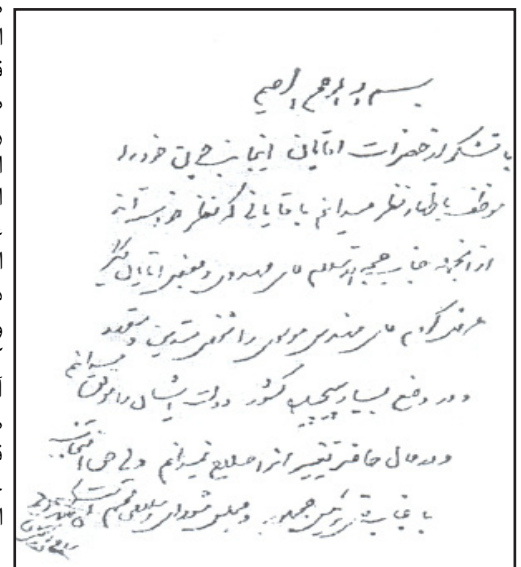 بسم الله الرحمن الرحیم
با تشکر از حضرات آقایان اینجانب چون خود را
موظف باظهار نظر میدانم بآقایانی که نظر خواسته‌اند
از آنجمله جناب حجةالاسلام آقای مهدوی و بعضی آقایان دیگر
عرض کردم آقای مهندس موسوی را شخص متدین و متعهد
و در وضع بسیار پیچیده کشور دولت ایشان را موفق میدانم
و در حال حاضر تغییر آنرا صلاح نمیدانم ولی حق انتخاب
با جناب آقای رئیس جمهور و مجلس شورای اسلامی محترم است